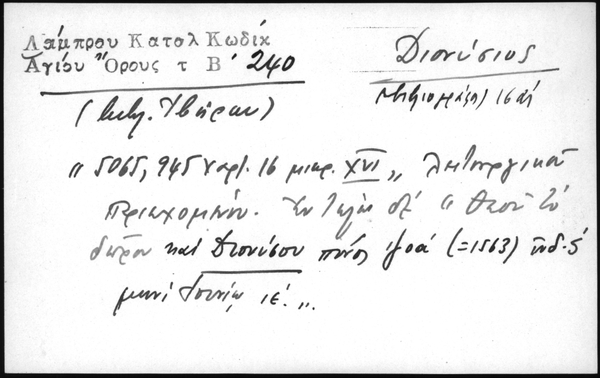 Λάμπρου Κατολ Κωδίκ
Διονύσιος
Ἁγίου Ὄρους τ Β΄ 240
(βιβλιογράφος) 16 αἰ
(Μον. Ἰβήρων)
" 5065, 945 χαρτ. 16 μικρ. XVI „ Λειτουργικοῦ
περιεχομένου. Ἐν τέλει " Θεοῦ τὸ
δῶρον καὶ Διονύσου πόνος ͵ζοα (=1563) ἰνδ. ς
μηνὶ Ἰουνίῳ ιε΄. „.